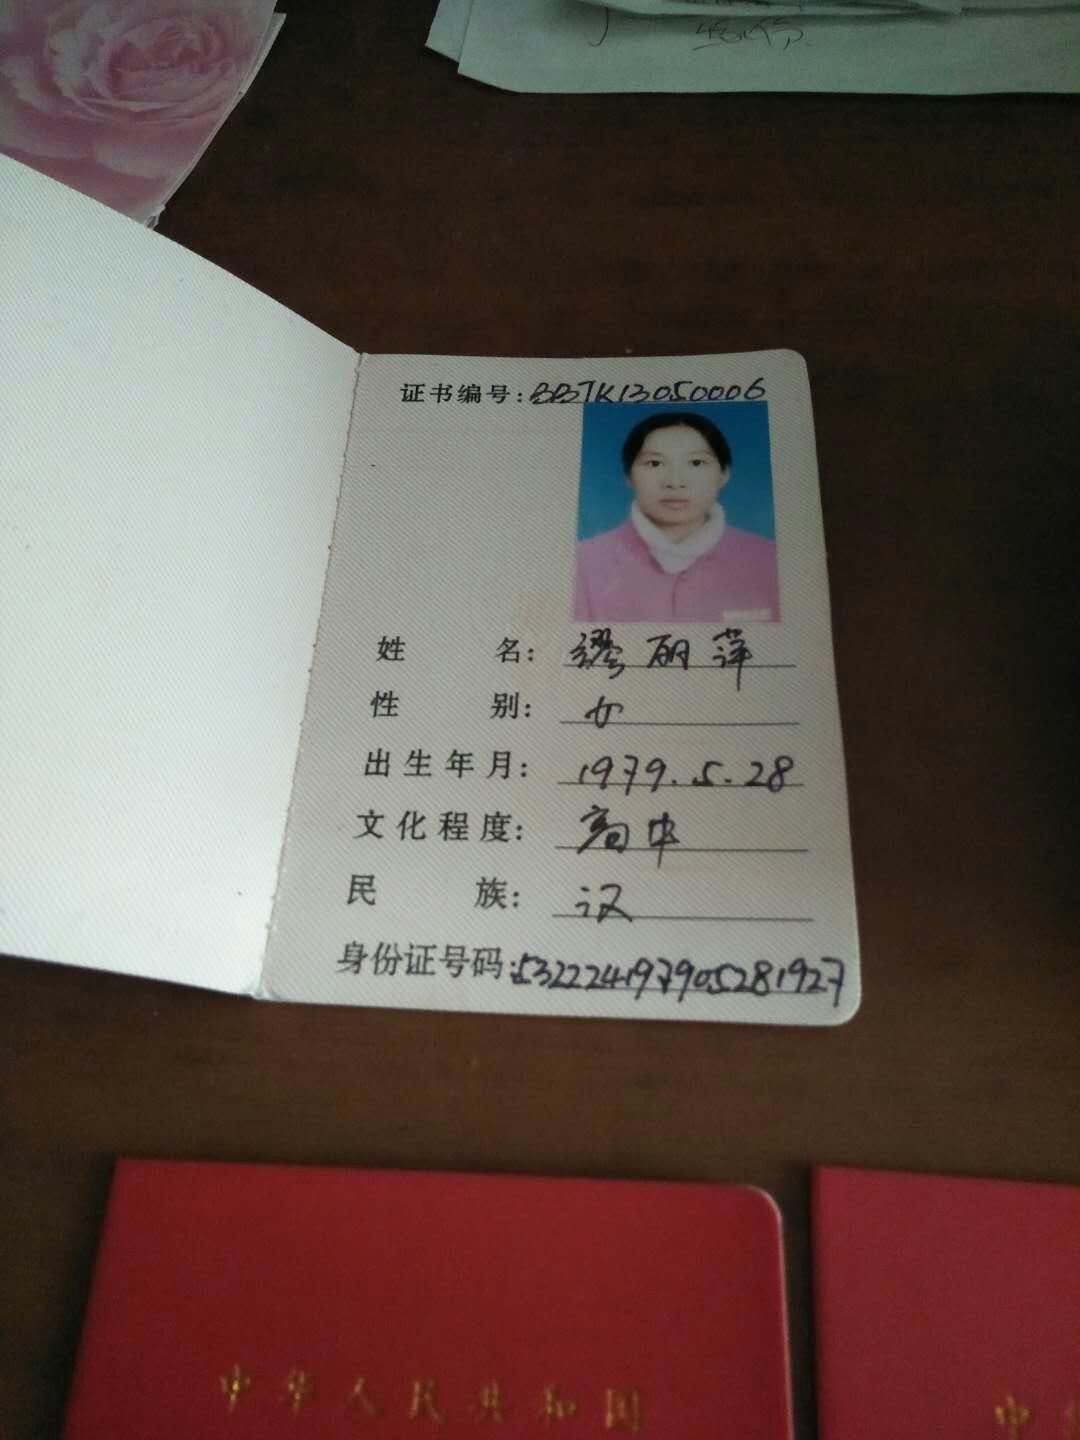 证书编号:BBTK13050006
姓名: 缪丽萍
性别: 女
出生年月: 1979.5.28
文化程度: 高中
民族: 汉
身份证号码:532224197905281927
中华人民共和国
中